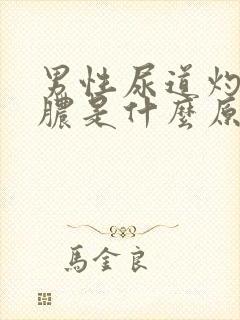 男性尿道灼
膿是什麼原
馬金良